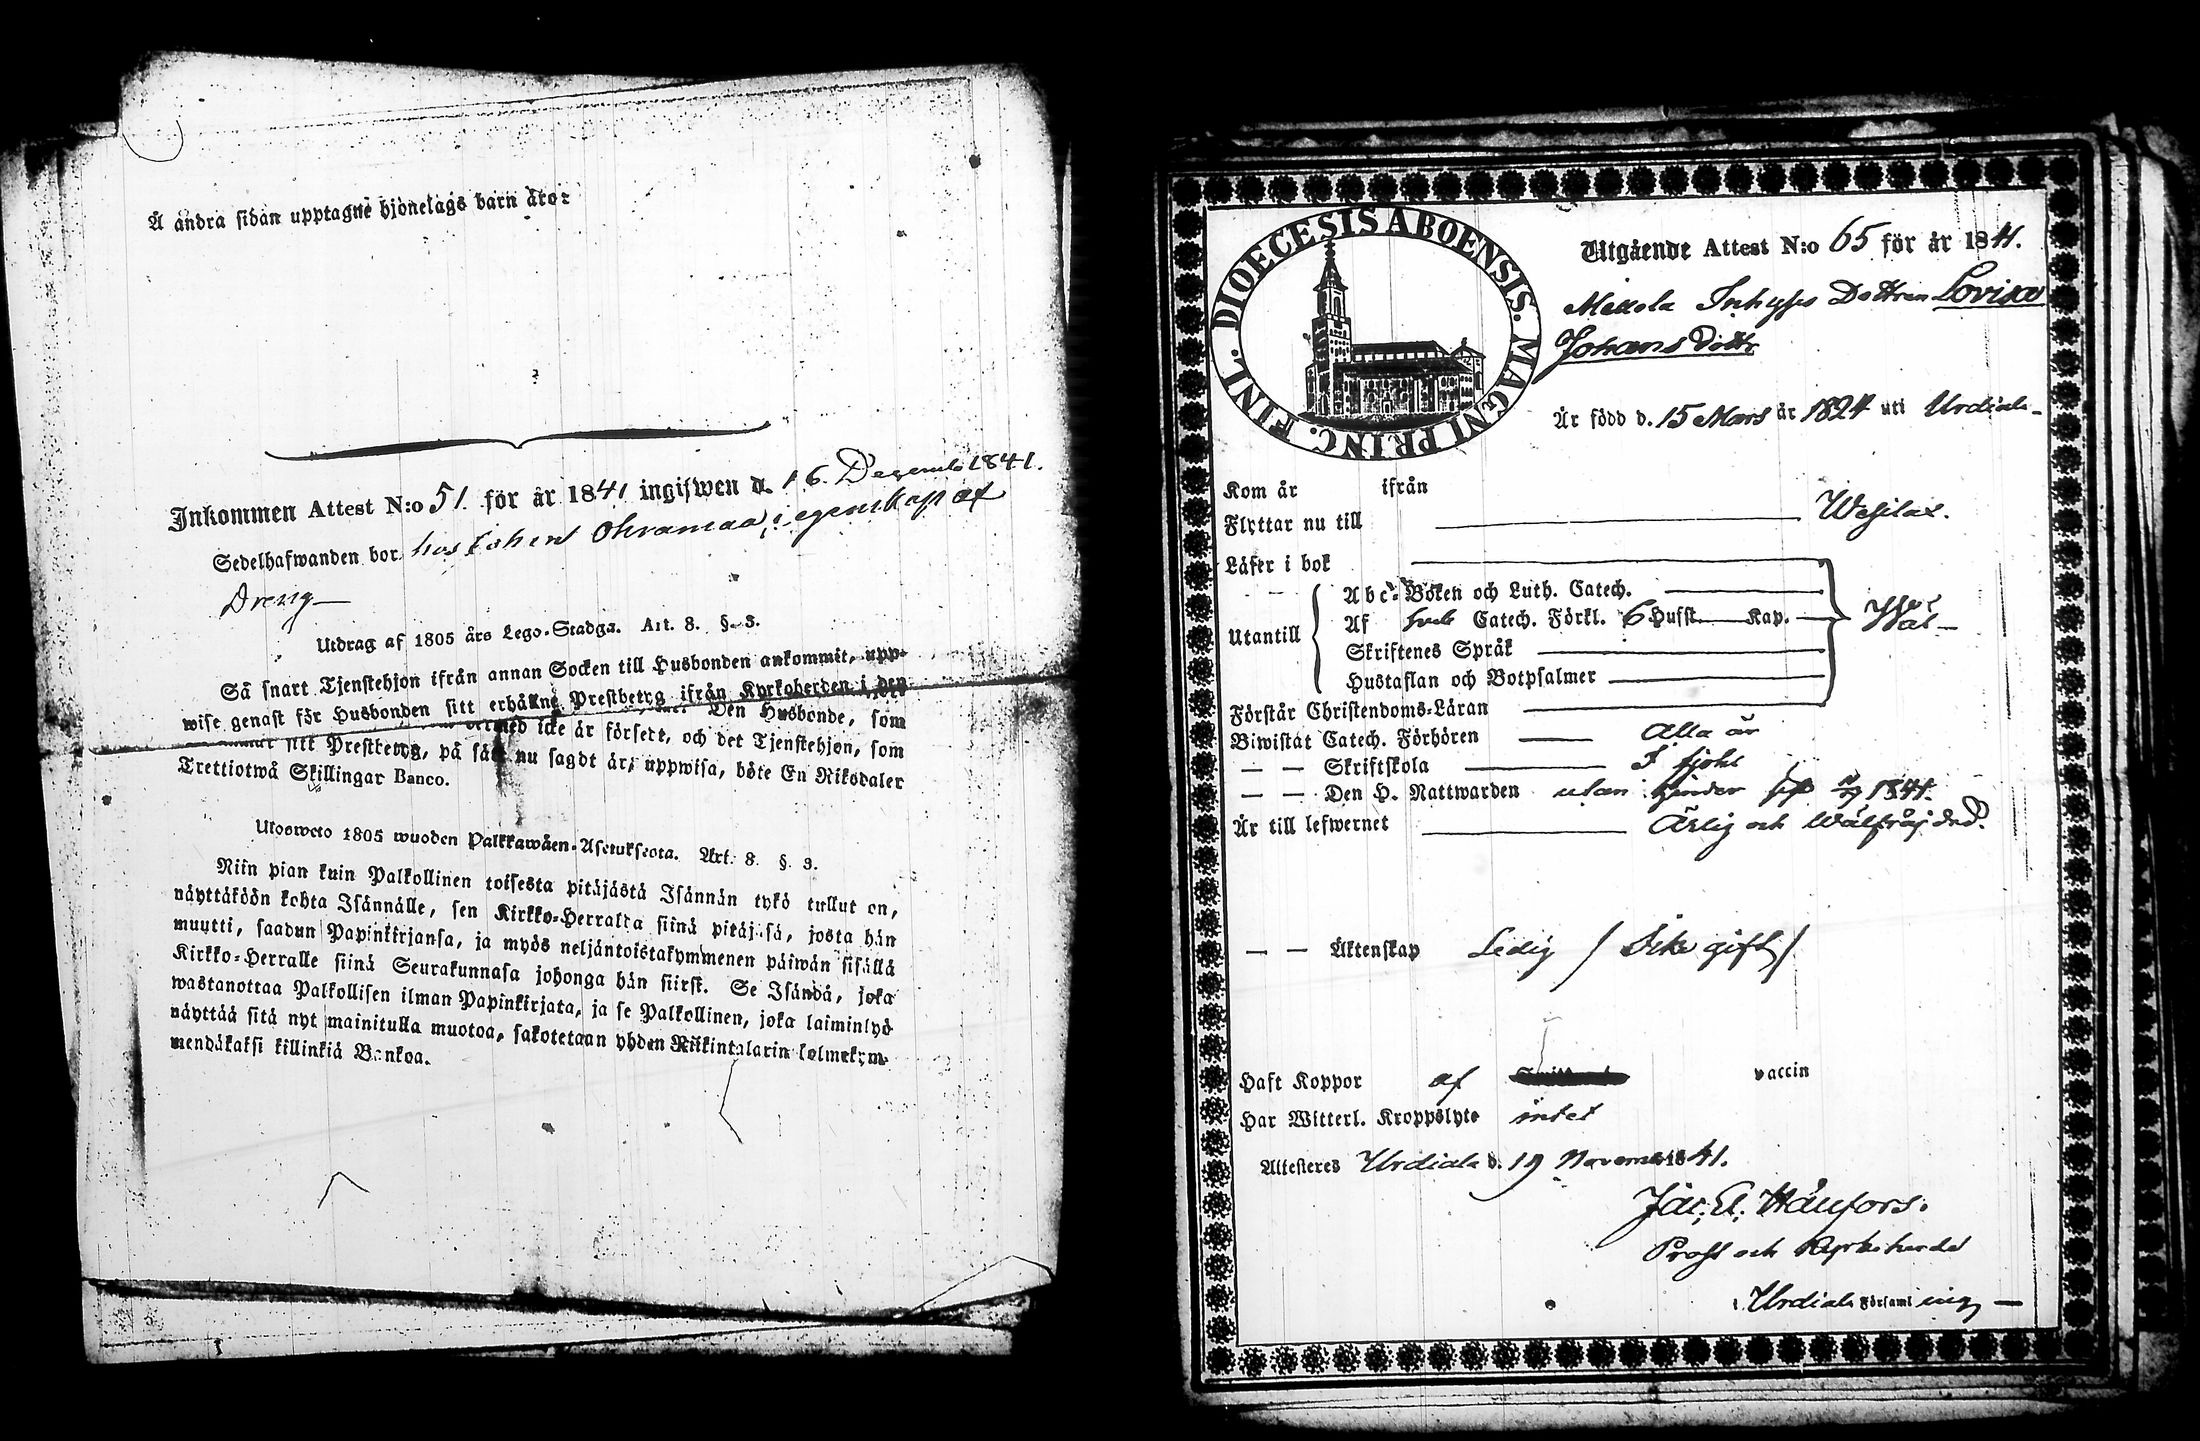 Å andra sidan upptagne hjonelags barn äro:
Inkommen Attest N:o 51. för år 1841 ingifwen d. 16. Decemb 1841.
Sedelhafwanden bor hos i egenskap af
Dreng
Utdrag af 1805 års Lego-Stadga. Art. 8. §. 3.
Så snart Tjenstehjon ifrån annan Socken till Husbonden ankommit, upp-
wise genast för Husbonden sitt erhållne Prestbetyg ifrån Kyrkoherden i den
Den Husbonde, som
icke är försedt, och det Tjenstehjon, som
sitt Prestbetyg, på sätt nu sagdt är, uppwisa, böte En Riksdaler
Trettiotwå Skillingar Banco.
Ulosweto 1805 wuoden Palkkawäen-Asetuksesta. Art. 8. §. 3.
Niin pian kuin Palkollinen toisesta pitäjästä Isännän tykö tullut on,
näyttäköön kohta Isännälle, sen Kirkko-Herralta siinä pitäjäsä, josta hän
muutti, saadun Papinkirjansa, ja myös neljäntoistakymmenen päiwän sisällä
Kirkko-Herralle siinä Seurakunnasa johonga hän siirsi. Se Isändä, joka
wastanottaa Palkollisen ilman Papinkirjata, ja se Palkollinen, joka laiminlyö
näyttää sitä nyt mainitulla muotoa, sakotetaan yhden Riikintalarin kolmekym-
mendäkaksi killinkiä Bankoa.
FINL. DIOECESIS ABOENSIS. MAGNI PRINC.
Utgående Attest N:o 65 för år 1841.
Inhyses Dottren Lovisa
Johans Dottr
Är född d. 15 Mars år 1824 uti Urdiala
Kom år ifrån
Flyttar nu till Wesilax.
Läser i bok
Abc-Boken och Luth. Catech.
Utantill Af Catech. Förkl. 6 Hufst. Kap. Wäl
Skriftenes Språk
Hustaflan och Botpsalmer
Förstår Christendoms-Läran
Biwistat Catech. Förhören Alla år
— — Skriftskola I fjohl
— — Den H. Nattwarden utan hinder 1841.
Är till lefwernet Ärlig och Wälfräjdad.
— — Äktenskap Ledig / Icke gift /
Haft Koppor af vaccin
Har Witterl. Kroppslyte intet
Attesteres Urdiala d. 19 Novemb 1841.
Prost och Kyrkoherde
i Urdiala Församling